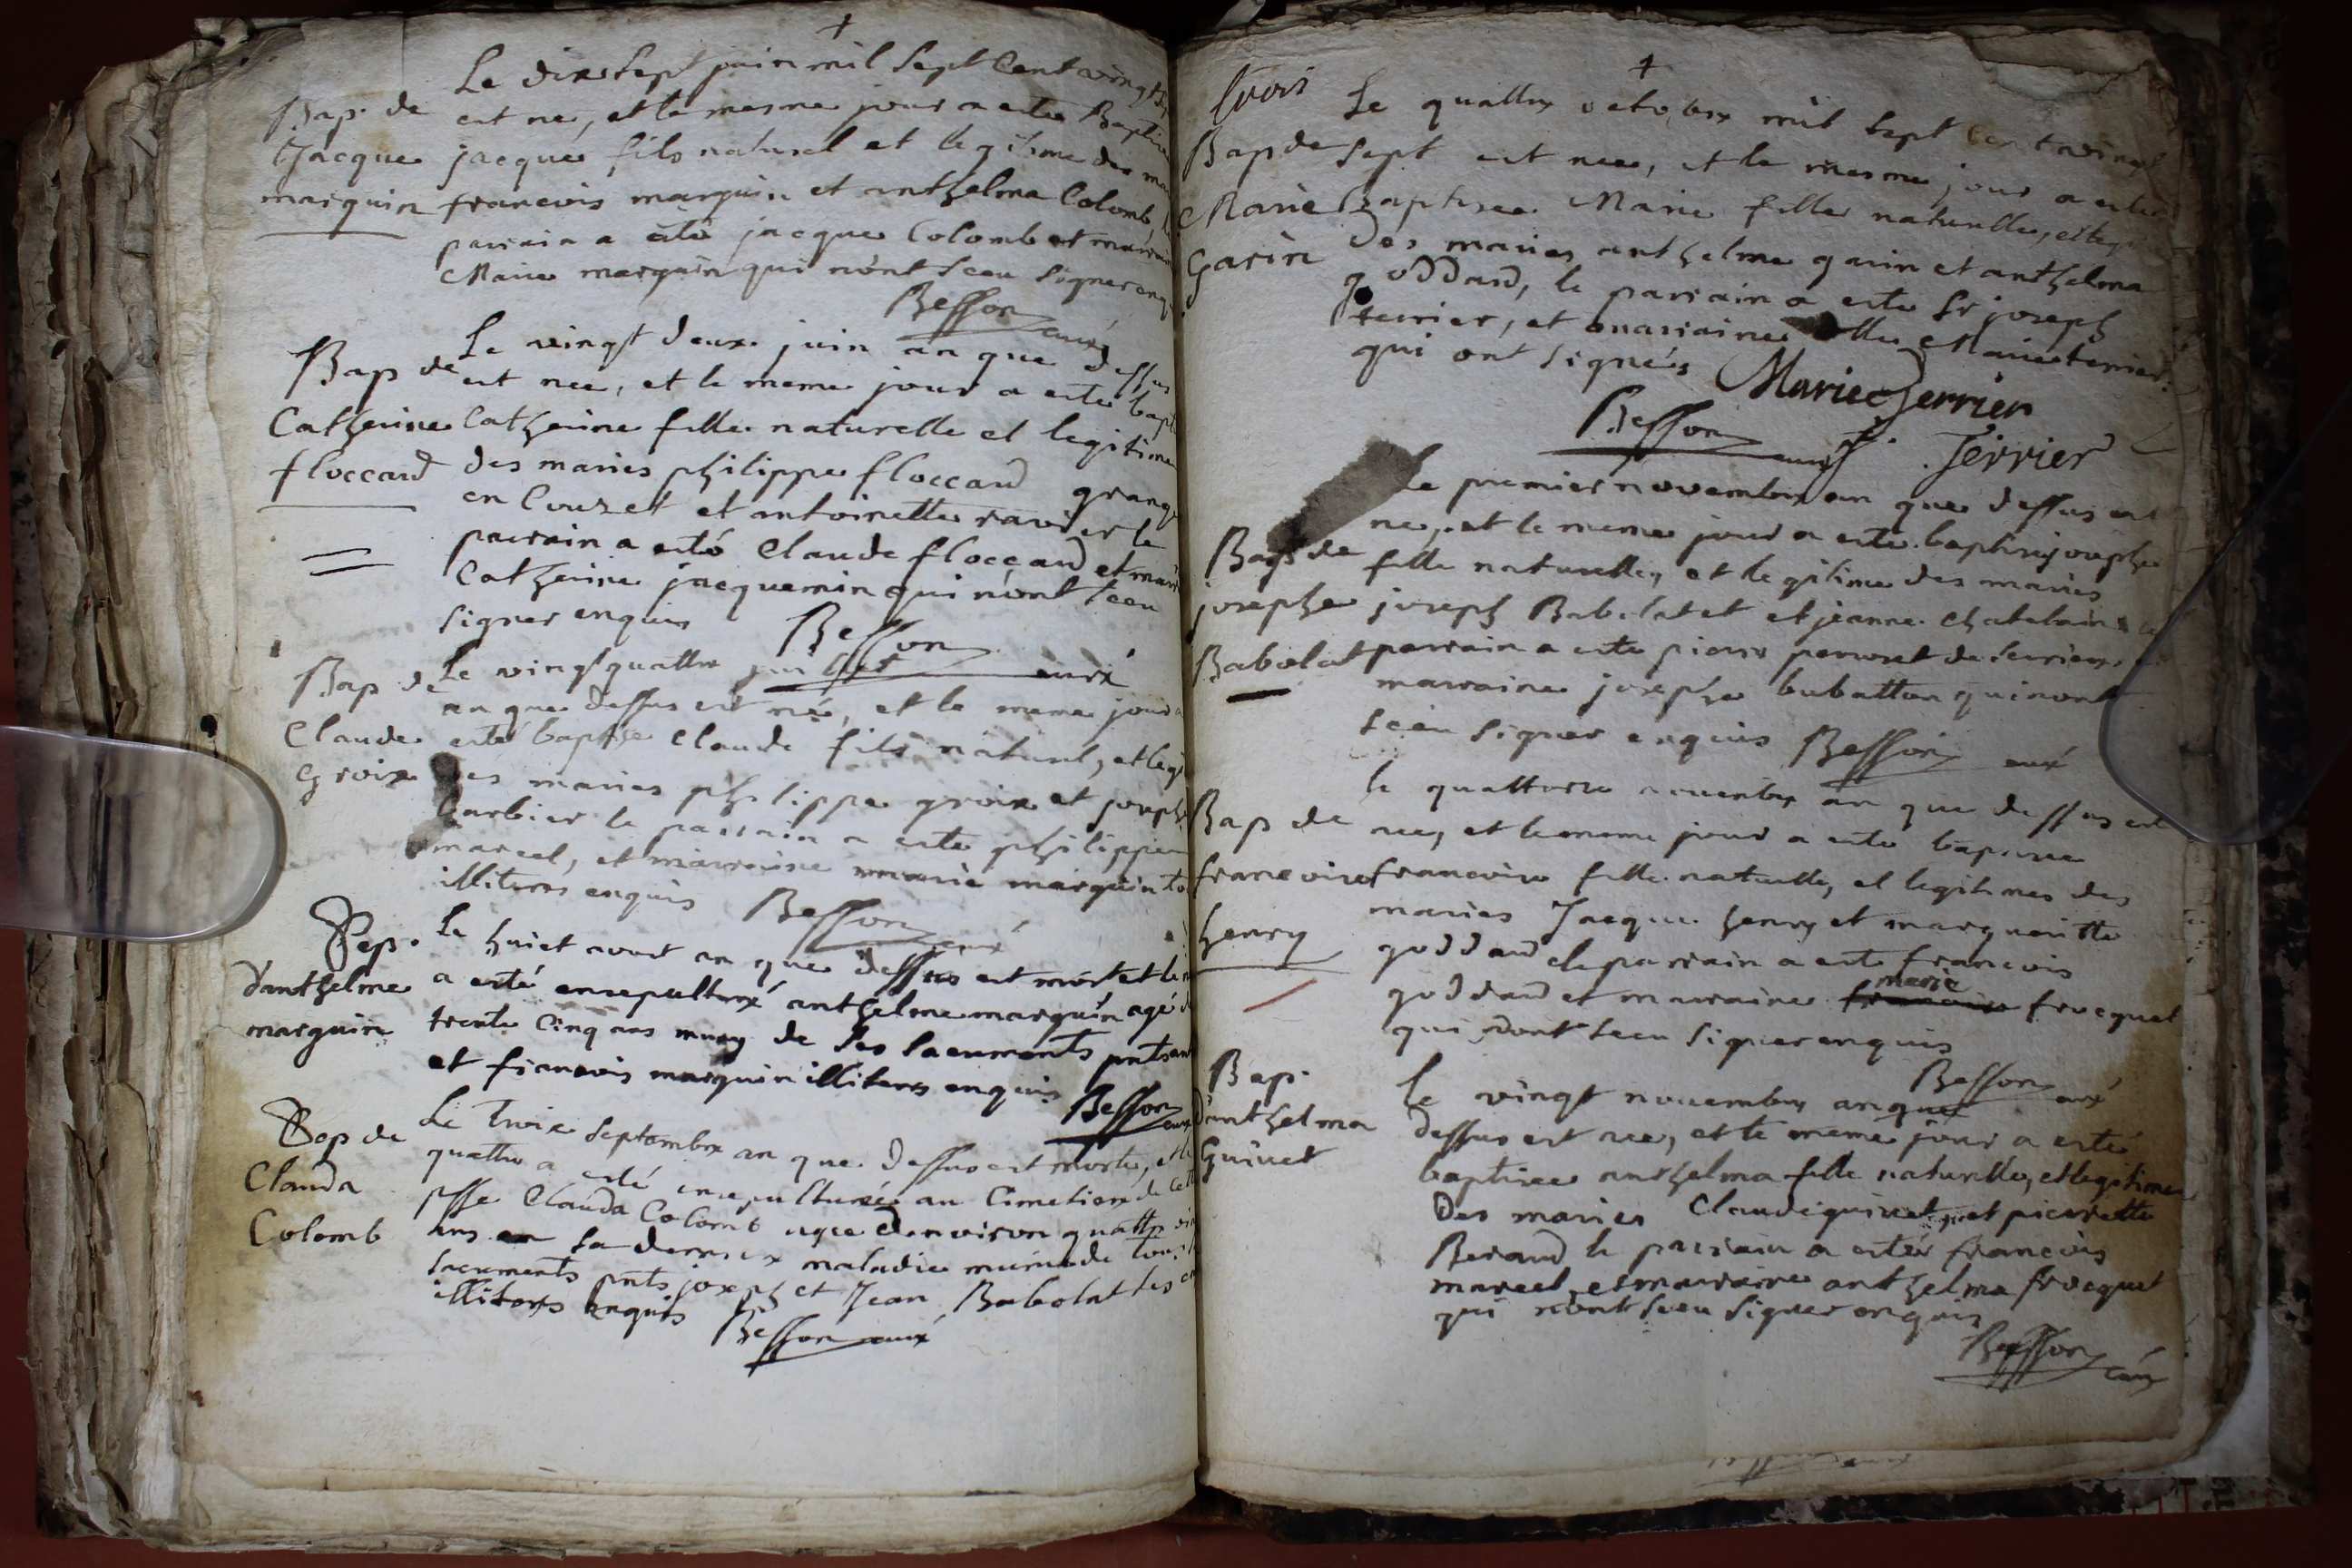 +
Le dix sept juin mil sept Cent vingt
Bap. de
Jacque
marguin
est ne, et le mesme jour a este Baptise
jacque fils naturel et legitime des
francois marguin et anthelma Colomb,
parrain a été jacque Colomb et marraine
Marie marguin qui n'ont sceu signer enq
Besson curé
Bap de
Catherine
floccard
Le vingt deux juin an que dessus
est nee, et le meme jour a este bapt
Catherine fille naturelle et legitime
des maries philippe floccard grang
en Couzet et antoinette ravier le
parrain a esté Claude floccard et mar
Catherine jacquemin qui n'ont sceu
signer enquis
Besson curé
Bap de
Claude
groix
Le vingt quattre juillet
an que dessus est né, et le meme jour a
esté baptise Claude fils naturel, et legi
des maries philippe groix et joseph
barbier le parrain a este philippe
marcel, et marraine marie marguin
illiteres enquis
Besson curé
Sep.
d'anthelme
marguin
Le huict aout an que dessus est mort et le
a esté ensepulturé anthelme marguin agé d
trente Cinq ans muny de ses sacrements pnts
et francois marguin illiteres enquis
Besson curé
Sep de
Clauda
Colomb
Le Troix Septembre an que dessus est morte, et le
quattre a esté ensepulturée au Cimetiere de cet
psse Clauda Colomb agee d'environ quattre
ans en sa derniere maladie munie de tous
sacrements pnts joseph et Jean Babolat
illiteres enquis
Besson curé
+
trois
Bap de
Marie
Garin
Le quattre octobre mil sept Cent vingt
sept est nee, et le mesme jour a este
Baptisee Marie fille naturelle, et leg
des maries anthelme garin et anthelma
goddard, le parrain a este Sr joseph
terrier, et marraine Marie terrier
qui ont signés
Marie Terrier
Besson curé
Terrier
Bap de
josephe
Babolat
Le premier novembre an que dessus est
ne, et le meme jour a este baptise josephe
fille naturelle, et legitime des maries
joseph Babolat et jeanne Chatelain le
parrain a este pierre perouset de
marraine josephe bubatton qui n'ont
sceu signer enquis Besson curé
Bap de
francoise
henry
le quattorze novembre an que dessus est
nee, et le meme jour a este baptisee
francoise fille naturelle, et legitimes des
maries Jacque henry et margueritte
goddard le parrain a este francois
goddard et marraine francoise marie frocquet
qui n'ont sceu signer enquis
Besson curé
Bap.
d'anthelma
Guinet
Le vingt novembre an que
dessus est nee, et le meme jour a esté
baptisee anthelma fille naturelle, et legitime
des maries Claude guinet, et pierrette
Beraud le parrain a esté francois
marcel, et marraine anthelma frocquet
qui n'ont sceu signer enquis
Besson curé